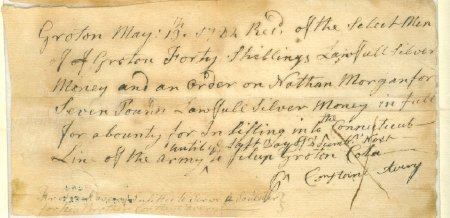 Groton May: 13th 1782 Recd of the Select Men
of Groton Forty Shillings Lawfull Silver
Money and an order on Nathan Morgan for
Seven Pound Lawfull Silver Money in full
for a bounty for In listing into the Connecticut
Line of the Army untill Last Day of Decembr Next
to filup Groton Cota
Avery